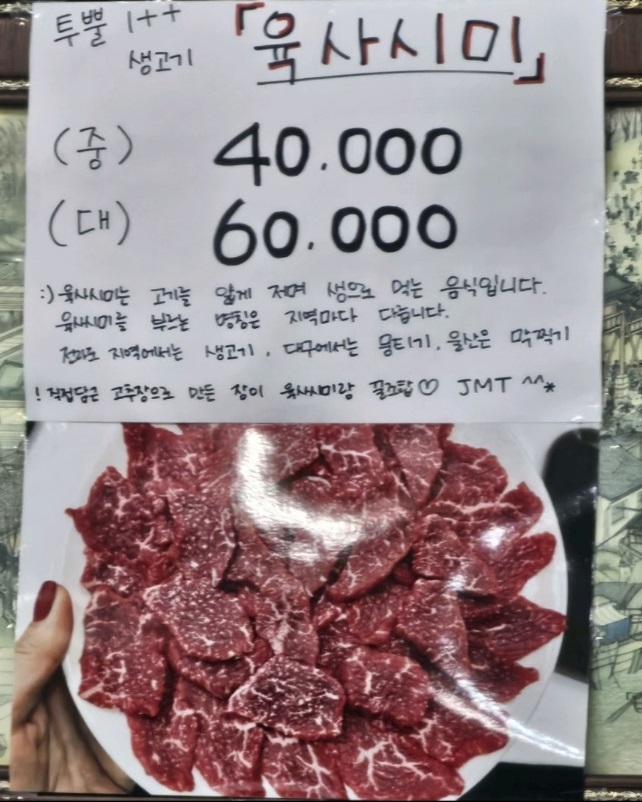 투뿔 1++
생고기
「육사시미」
(중) 40.000
(대) 60.000
:) 육사시미는 고기를 얇게 저며 생으로 먹는 음식입니다.
육사시미를 부르는 명칭은 지역마다 다릅니다.
전라도 지역에서는 생고기, 대구에서는 뭉티기, 울산은 막찍기
! 직접담근 고추장으로 만든 장이 육사시미랑 꿀조합♡ JMT ^^*